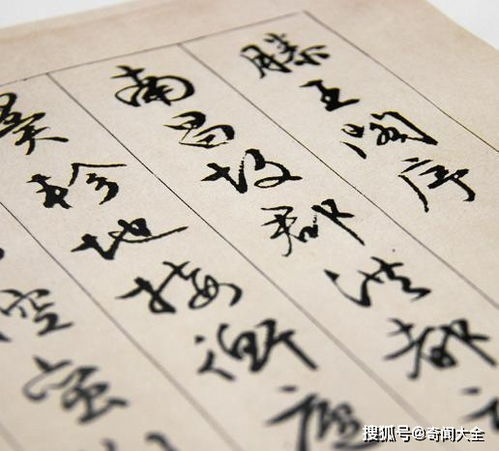 滕王阁序
南昌故郡洪都
翼轸地接衡庐
控蛮
搜狐号@奇闻大全